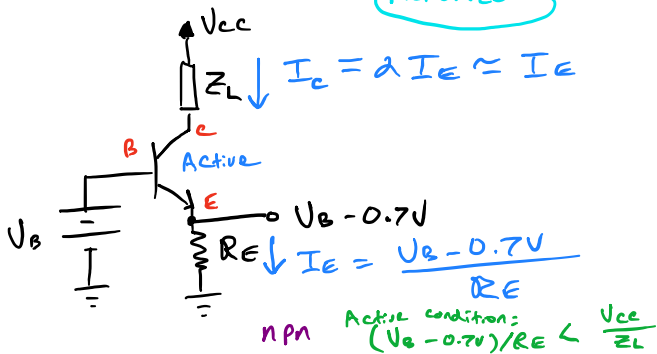 Vcc
ZL
Ic = α IE ≃ IE
C
B
Active
E
VB
VB - 0.7V
RE
IE = VB - 0.7V / RE
npn
Active condition:
(VB - 0.7V)/RE < Vcc / ZL